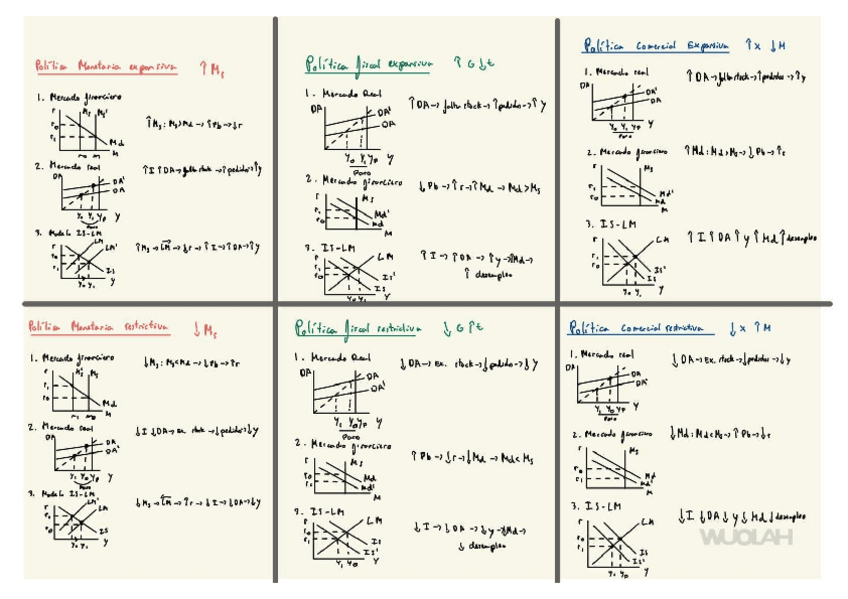 Política Monetaria expansiva ↑Ms
1. Mercado financiero
r
Ms Ms'
r0
r1
Md
M
↑Ms: Ms>Md → ↑Pb → ↓r
2. Mercado real
DA
DA'
DA
Y0 Y1 Yp Y
Paro
↑I ↑DA → falta stock → ↑pedidos → ↑y
3. Modelo IS-LM
r
LM
LM'
r0
r1
IS
Y0 Y1 Y
↑Ms → LM → ↓r → ↑I → ↑DA → ↑y
Política fiscal expansiva ↑G ↓t
1. Mercado Real
DA
DA'
DA
Y0 Y1 Yp Y
Paro
↑DA → falta stock → ↑pedidos → ↑y
2. Mercado financiero
r
Ms
r1
r0
Md'
Md
M
↓Pb → ↑r → ↑Md → Md>Ms
3. IS-LM
r
LM
r1
r0
IS'
IS
Y0 Y1 Y
↑I → ↑DA → ↑y → ↑Md →
↑ desempleo
Política Comercial Expansiva ↑X ↓M
1. Mercado real
DA
DA'
DA
Y0 Y1 Yp Y
Paro
↑DA → falta stock → ↑pedidos → ↑y
2. Mercado financiero
r
Ms
r1
r0
Md'
Md
M
↑Md: Md>Ms → ↓Pb → ↑r
3. IS-LM
r
LM
r1
r0
IS'
IS
Y0 Y1 Y
↑I ↑DA ↑y ↑Md ↑desempleo
Política Monetaria restrictiva ↓Ms
1. Mercado financiero
r
Ms' Ms
r1
r0
Md
M
↓Ms: Ms<Md → ↓Pb → ↑r
2. Mercado real
DA
DA
DA'
Y1 Y0 Yp Y
Paro
↓I ↓DA → ex. stock → ↓pedidos → ↓y
3. Modelo IS-LM
r
LM'
LM
r1
r0
IS
Y1 Y0 Y
↓Ms → LM → ↑r → ↓I → ↓DA → ↓y
Política fiscal restrictiva ↓G ↑t
1. Mercado Real
DA
DA
DA'
Y1 Y0 Yp Y
Paro
↓DA → ex. stock → ↓pedidos → ↓y
2. Mercado financiero
r
Ms
r0
r1
Md
Md'
M
↑Pb → ↓r → ↓Md → Md<Ms
3. IS-LM
r
LM
r0
r1
IS
IS'
Y1 Y0 Y
↓I → ↓DA → ↓y → ↓Md →
↓ desempleo
Política Comercial restrictiva ↓X ↑M
1. Mercado real
DA
DA
DA'
Y1 Y0 Yp Y
Paro
↓DA → ex. stock → ↓pedidos → ↓y
2. Mercado financiero
r
Ms
r0
r1
Md
Md'
M
↓Md: Md<Ms → ↑Pb → ↓r
3. IS-LM
r
LM
r0
r1
IS
IS'
Y1 Y0 Y
↓I ↓DA ↓y ↓Md ↓desempleo
WUOLAH